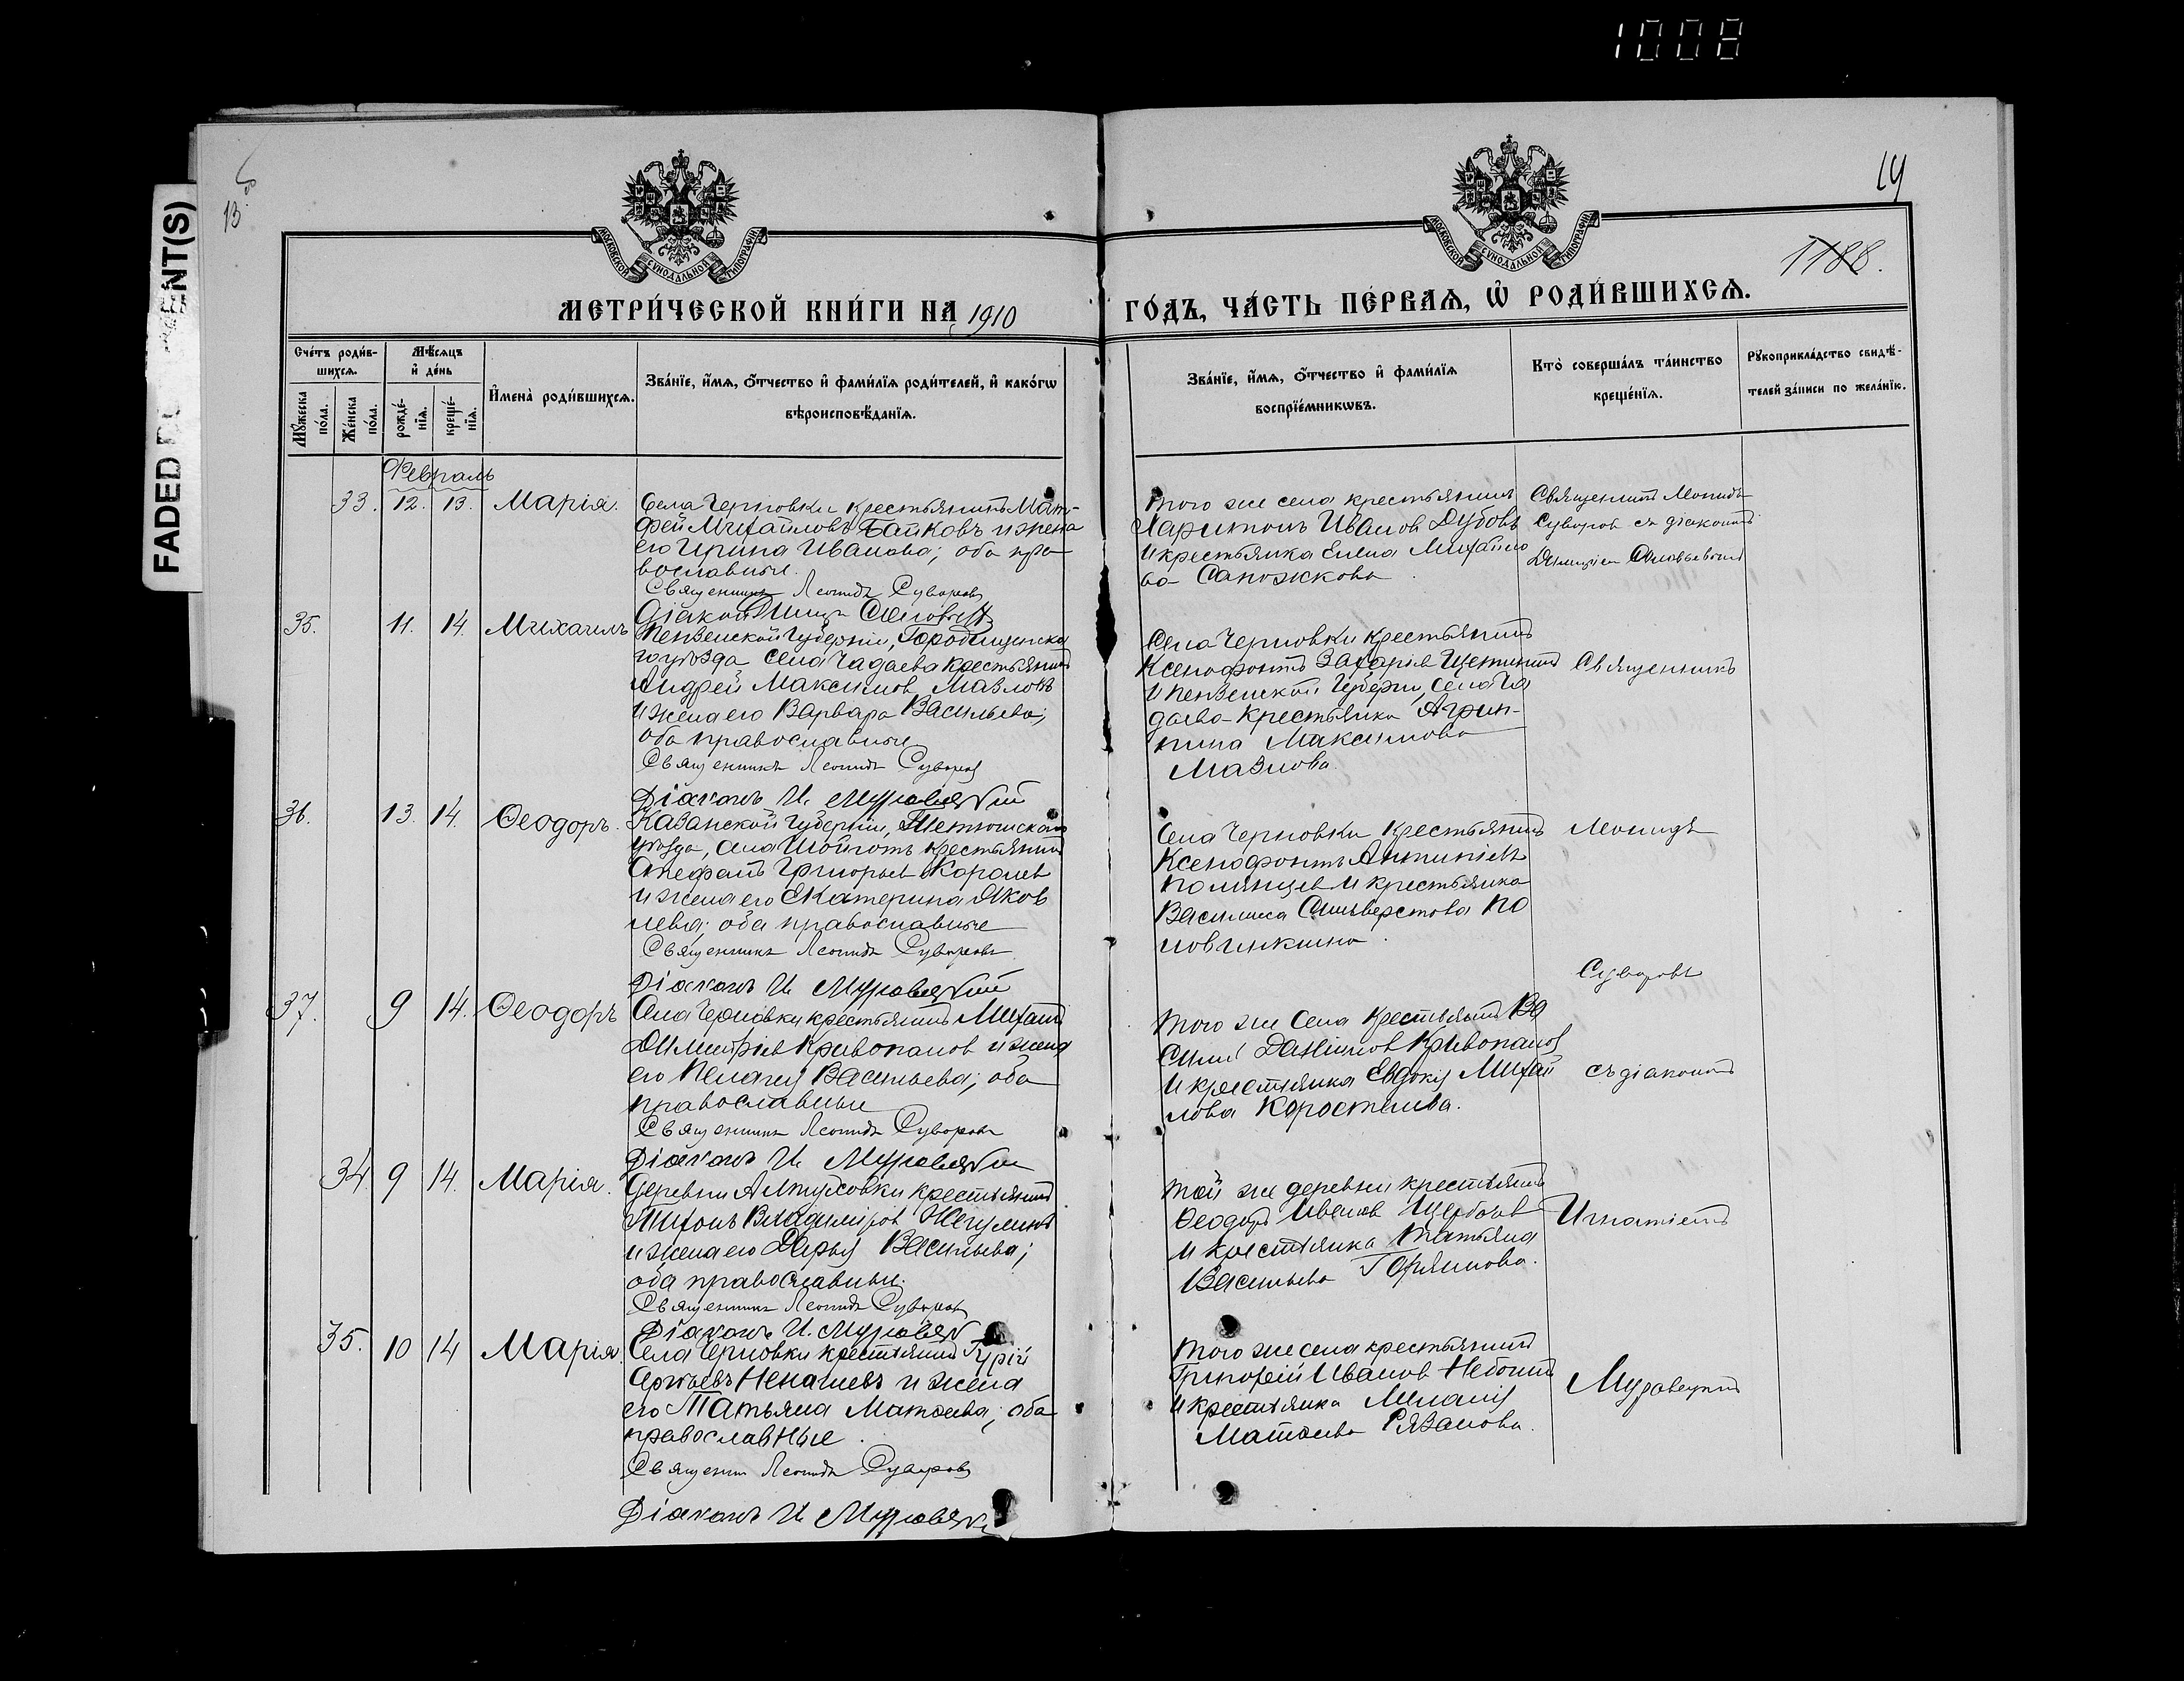 1008
FADED DOCUMENT(S)
13
14
1188.
МОСКОВСКОЙ СѴНОДАЛЬНОЙ ТИПОГРАФІИ
МОСКОВСКОЙ СѴНОДАЛЬНОЙ ТИПОГРАФІИ
МЕТРИ́ЧЕСКОЙ КНИ́ГИ НА 1910 ГО́ДЪ, ЧА́СТЬ ПЕ́РВАѦ, Ѡ҆ РОДИ́ВШИХСѦ.
Сче́тъ роди́в-
шихсѧ.
Мꙋ́жеска по́ла.
Же́нска по́ла.
Мѣ́сѧцъ
и҆ де́нь
рожде́-
нїѧ.
креще́-
нїѧ.
И҆мена̀ роди́вшихсѧ.
Зва́нїе, и҆́мѧ, ѻ҆́тчество и҆ фами́лїѧ роди́телей, и҆ како́гѡ
вѣроисповѣ́данїѧ.
Зва́нїе, и҆́мѧ, ѻ҆́тчество и҆ фами́лїѧ
воспрїе́мникѡвъ.
Кто̀ соверша́лъ та́инство
креще́нїѧ.
Рꙋкоприкла́дство свидѣ́-
телей за́писи по жела́нїю.
Февраль
33. 12. 13. Марія.
Села Черновки крестьянинъ Мат-
фей Михайловъ Байковъ и жена
его Ирина Иванова; оба пра-
вославные.
Священникъ Леонидъ Суворовъ
Діаконъ
того же села крестьянинъ
Харитонъ Иванов Дубовъ
и крестьянка Елена Михайло
ва Сапожкова.
Священникъ Леонидъ
Суворов съ діакономъ
35. 11. 14. Михаилъ
Пензенской губерніи, Городищенска
го уѣзда села Чадаева крестьянинъ
Андрей Максимов Мазловъ
и жена его Варвара Васильева;
оба православные
Священникъ Леонидъ Суворов
Діаконъ И. Муравецкій
Села Черновки крестьянинъ
Ксенофонтъ Захаріев Щетининъ
и Пензенской губерніи, села Ча
даева крестьянка Агрип-
пина Максимова
Мазлова.
Священникъ
36. 13. 14. Ѳеодоръ.
Казанской губерніи, Тетюшскаго
уѣзда, села крестьянинъ
Стефанъ Григорьев Королев
и жена его Екатерина Яков
лева; оба православные
Священникъ Леонидъ Суворовъ
Діаконъ И. Муравецкій
Села Черновки крестьянинъ
Ксенофонтъ Антипіев
и крестьянка
Василиса Сильверстова По
ловинкина.
Леонидъ
Суворовъ
37. 9 14. Ѳеодоръ
Села Черновки крестьянинъ Михаилъ
Димитріев Кривопалов и жена
его Пелагея Васильева; оба
православные
Священникъ Леонидъ Суворовъ
Діаконъ И. Муравецкій
того же села крестьянинъ Ва
силій Даніилов Кривопалов
и крестьянка Евдокія Михай
лова Коростелева.
съ діакономъ
34. 9 14. Марія.
Деревни крестьянинъ
Тихонъ Владиміров
и жена его Дарья Васильева;
оба православные.
Священникъ Леонидъ Суворов
Діаконъ И. Муравецк
той же деревни крестьянинъ
Ѳеодоръ Иванов Щербаков
и крестьянка Татьяна
Васильева Горяинова.
Игнатіемъ
35. 10 14 Марія.
Села Черновки крестьянинъ Гурій
Сергѣевъ Ненашевъ и жена
его Татьяна Матѳеева; оба
православные.
Священник Леонидъ Суворовъ
Діаконъ И. Муравецкі
того же села крестьянинъ
Григорій Иванов
и крестьянка Меланія
Матѳеева Рязанова.
Муравецкимъ